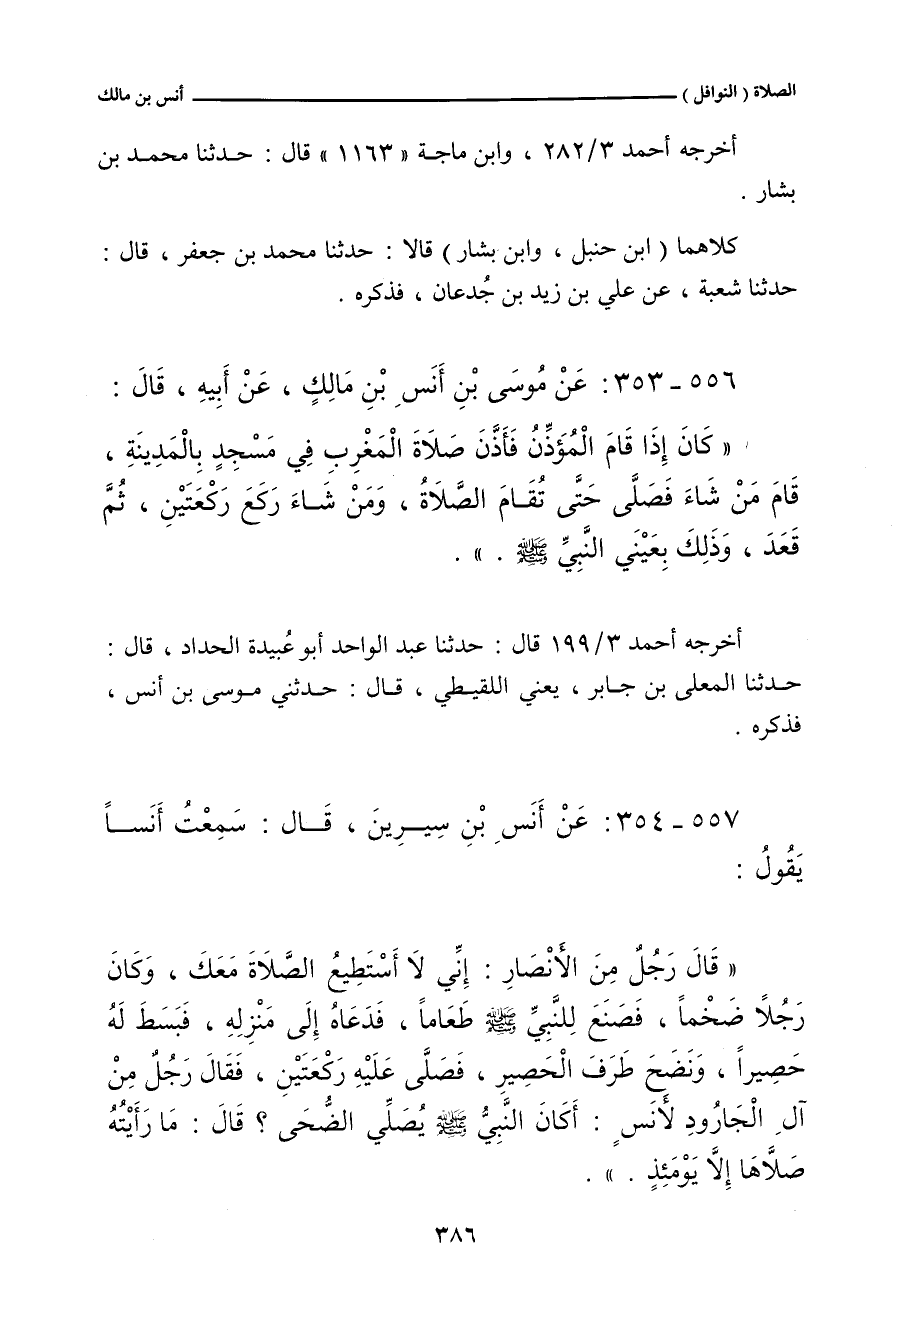 الصلاة ( النوافل ) ــــــــ أنس بن مالك
أخرجه أحمد ٢٨٢/٣ ، وابن ماجة « ١١٦٣ » قال : حدثنا محمد بن
بشار .
كلاهما ( ابن حنبل ، وابن بشار ) قالا : حدثنا محمد بن جعفر ، قال :
حدثنا شعبة ، عن علي بن زيد بن جُدعان ، فذكره .
٥٥٦ ـ ٣٥٣: عَنْ مُوسَى بْنِ أَنَسِ بْنِ مَالِكٍ ، عَنْ أَبِيهِ ، قَالَ :
« كَانَ إِذَا قَامَ الْمُؤَذِّنُ فَأَذَّنَ صَلَاةَ الْمَغْرِبِ فِي مَسْجِدٍ بِالْمَدِينَةِ ،
قَامَ مَنْ شَاءَ فَصَلَّى حَتَّى تُقَامَ الصَّلَاةُ ، وَمَنْ شَاءَ رَكَعَ رَكْعَتَيْنِ ، ثُمَّ
قَعَدَ ، وَذَلِكَ بِعَيْنَيِ النَّبِيِّ ﷺ . » .
أخرجه أحمد ١٩٩/٣ قال : حدثنا عبد الواحد أبو عُبيدة الحداد ، قال :
حدثنا المعلى بن جابر ، يعني اللقيطي ، قال : حدثني موسى بن أنس ،
فذكره .
٥٥٧ ـ ٣٥٤: عَنْ أَنَسِ بْنِ سِيرِينَ ، قَال : سَمِعْتُ أَنَساً
يَقُولُ :
« قَالَ رَجُلٌ مِنَ الأَنْصَارِ : إِنِّي لَا أَسْتَطِيعُ الصَّلَاةَ مَعَكَ ، وَكَانَ
رَجُلًا ضَخْماً ، فَصَنَعَ لِلنَّبِيِّ ﷺ طَعَاماً ، فَدَعَاهُ إِلَى مَنْزِلِهِ ، فَبَسَطَ لَهُ
حَصِيراً ، وَنَضَحَ طَرَفَ الْحَصِيرِ ، فَصَلَّى عَلَيْهِ رَكْعَتَيْنِ ، فَقَالَ رَجُلٌ مِنْ
آلِ الْجَارُودِ لأَنَسٍ : أَكَانَ النَّبِيُّ ﷺ يُصَلِّي الضُّحَى ؟ قَالَ : مَا رَأَيْتُهُ
صَلَّاهَا إِلَّا يَوْمَئِذٍ . » .
٣٨٦